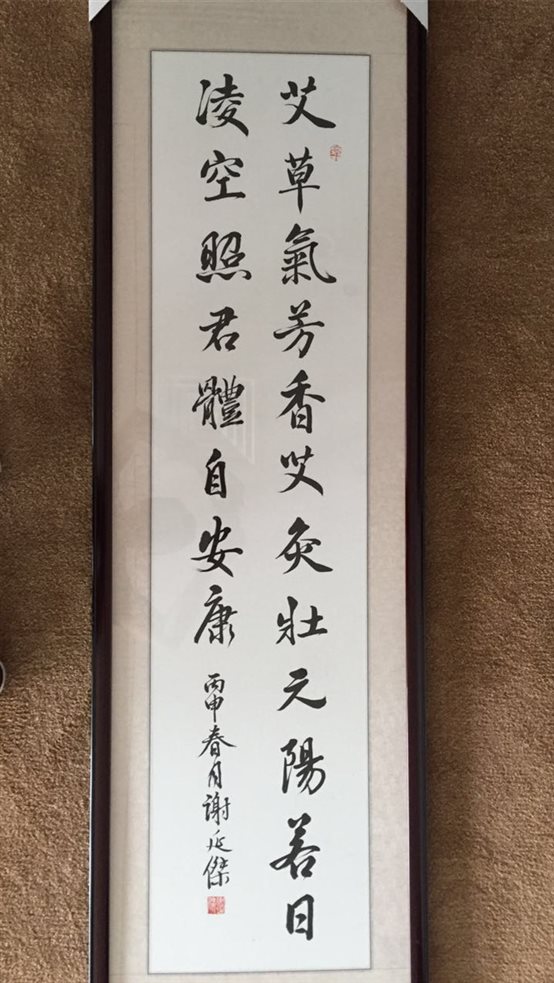 艾草氣芳香艾灸壯元陽若日
淩空照君體自安康
丙申春月謝延傑